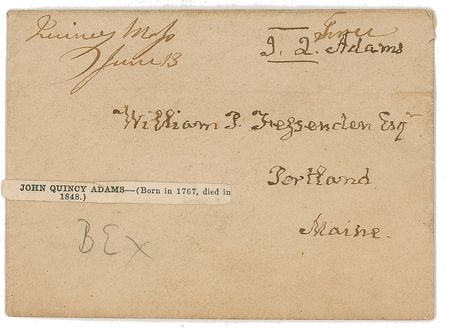 Quincy Mass
7 June 13
Free
J. Q. Adams
William P. Fessenden Esqr
Portland
Maine.
JOHN QUINCY ADAMS—(Born in 1767, died in
1848.)
BEX